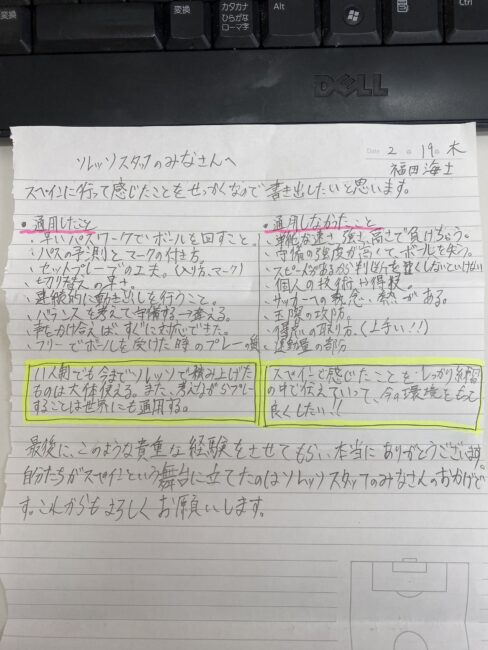 変換
カタカナ
ひらがな
ローマ字
Alt
変換
Ctrl
DELL
Date 2. 19. 木
ソレッソスタッフのみなさんへ
福田海士
スペインに行って感じたことをせっかくなので書き出したいと思います。
・通用したこと
・早いパスワークでボールを回すこと。
・パスの予測とマークの付き方。
・セットプレーでの工夫。(入り方、マーク)
・切り替えの早さ。
・連続的に動き出しを行うこと。
・バランスを考えて守備する→奪える。
・声をかけ合えば、すぐに対応できた。
・フリーでボールを受けた時のプレーの質
11人制でも今までソレッソで積み上げた
ものは大体使える。また、考えながらプレー
することは世界にも通用する。
・通用しなかったこと
・単純な速さ、強さ、高さで負けちゃう。
・守備の強度が高くて、ボールを失う。
・スピードがあるから判断を早くしないといけない
・個人の技術
・サッカーへの熱意・熱がある。
・玉際の攻防。
・優位の取り方.(上手い!!)
・運動量の部分
スペインで感じたことをしっかり練習
の中で伝えていって、今の環境をもっと
良くしたい!!
最後に、このような貴重な経験をさせてもらい、本当にありがとうございます。
自分たちがスペインという舞台に立てたのはソレッソスタッフのみなさんのおかげで
す。これからもよろしくお願いします。